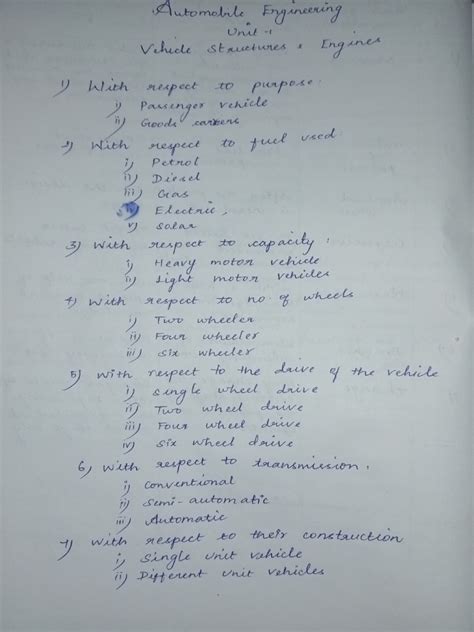 Automobile Engineering
Unit-1
Vehicle Structures & Engines
1) With respect to purpose:
i) Passenger vehicle
ii) Goods carriers
2) With respect to fuel used:
i) Petrol
ii) Diesel
iii) Gas
iv) Electric,
v) Solar
3) With respect to capacity:
i) Heavy motor vehicle
ii) Light motor vehicles
4) With respect to no. of wheels
i) Two wheeler
ii) Four wheeler
iii) Six wheeler
5) With respect to the drive of the vehicle
i) Single wheel drive
ii) Two wheel drive
iii) Four wheel drive
iv) Six wheel drive
6) With respect to transmission.
i) Conventional
ii) Semi-automatic
iii) Automatic
7) With respect to their construction
i) Single unit vehicle
ii) Different unit vehicles